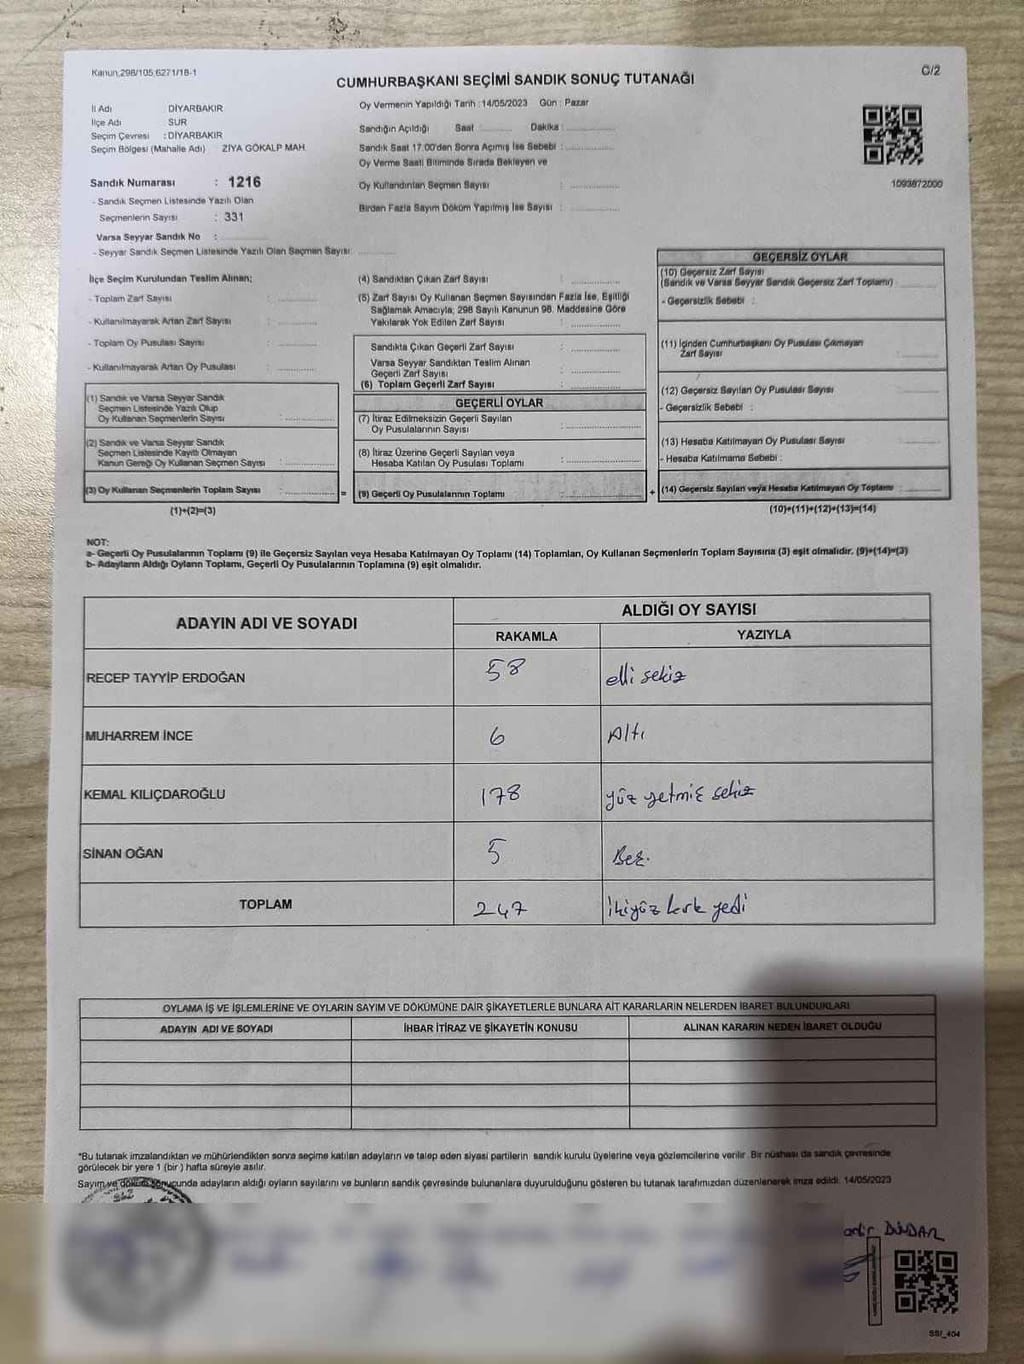 Kanun,298/105,6271/18-1
C/2
CUMHURBAŞKANI SEÇİMİ SANDIK SONUÇ TUTANAĞI
İl Adı DİYARBAKIR
İlçe Adı SUR
Seçim Çevresi : DİYARBAKIR
Seçim Bölgesi (Mahalle Adı) ZİYA GÖKALP MAH.
Sandık Numarası : 1216
- Sandık Seçmen Listesinde Yazılı Olan
Seçmenlerin Sayısı : 331
Varsa Seyyar Sandık No :
- Seyyar Sandık Seçmen Listesinde Yazılı Olan Seçmen Sayısı:
Oy Vermenin Yapıldığı Tarih :14/05/2023 Gün : Pazar
Sandığın Açıldığı Saat : Dakika :
Sandık Saat 17.00'den Sonra Açılmış İse Sebebi :
Oy Verme Saati Bitiminde Sırada Bekleyen ve
Oy Kullandırılan Seçmen Sayısı :
Birden Fazla Sayım Döküm Yapılmış İse Sayısı :
1093872000
İlçe Seçim Kurulundan Teslim Alınan;
- Toplam Zarf Sayısı :
- Kullanılmayarak Artan Zarf Sayısı :
- Toplam Oy Pusulası Sayısı :
- Kullanılmayarak Artan Oy Pusulası :
(1) Sandık ve Varsa Seyyar Sandık
Seçmen Listesinde Yazılı Olup
Oy Kullanan Seçmenlerin Sayısı :
(2) Sandık ve Varsa Seyyar Sandık
Seçmen Listesinde Kayıtlı Olmayan
Kanun Gereği Oy Kullanan Seçmen Sayısı :
(3) Oy Kullanan Seçmenlerin Toplam Sayısı :
(1)+(2)=(3)
(4) Sandıktan Çıkan Zarf Sayısı :
(5) Zarf Sayısı Oy Kullanan Seçmen Sayısından Fazla İse, Eşitliği
Sağlamak Amacıyla, 298 Sayılı Kanunun 98. Maddesine Göre
Yakılarak Yok Edilen Zarf Sayısı :
Sandıkta Çıkan Geçerli Zarf Sayısı :
Varsa Seyyar Sandıktan Teslim Alınan
Geçerli Zarf Sayısı :
(6) Toplam Geçerli Zarf Sayısı :
GEÇERLİ OYLAR
(7) İtiraz Edilmeksizin Geçerli Sayılan
Oy Pusulalarının Sayısı :
(8) İtiraz Üzerine Geçerli Sayılan veya
Hesaba Katılan Oy Pusulası Toplamı :
= (9) Geçerli Oy Pusulalarının Toplamı :
GEÇERSİZ OYLAR
(10) Geçersiz Zarf Sayısı
(Sandık ve Varsa Seyyar Sandık Geçersiz Zarf Toplamı) :
- Geçersizlik Sebebi :
(11) İçinden Cumhurbaşkanı Oy Pusulası Çıkmayan
Zarf Sayısı :
(12) Geçersiz Sayılan Oy Pusulası Sayısı :
- Geçersizlik Sebebi :
(13) Hesaba Katılmayan Oy Pusulası Sayısı :
- Hesaba Katılmama Sebebi :
+ (14) Geçersiz Sayılan veya Hesaba Katılmayan Oy Toplamı :
(10)+(11)+(12)+(13)=(14)
NOT:
a- Geçerli Oy Pusulalarının Toplamı (9) ile Geçersiz Sayılan veya Hesaba Katılmayan Oy Toplamı (14) Toplamları, Oy Kullanan Seçmenlerin Toplam Sayısına (3) eşit olmalıdır. (9)+(14)=(3)
b- Adayların Aldığı Oyların Toplamı, Geçerli Oy Pusulalarının Toplamına (9) eşit olmalıdır.
ADAYIN ADI VE SOYADI
ALDIĞI OY SAYISI
RAKAMLA YAZIYLA
RECEP TAYYİP ERDOĞAN 58 elli sekiz
MUHARREM İNCE 6 Altı
KEMAL KILIÇDAROĞLU 178 yüz yetmiş sekiz
SİNAN OĞAN 5 Beş.
TOPLAM 247 ikiyüz kırk yedi
OYLAMA İŞ VE İŞLEMLERİNE VE OYLARIN SAYIM VE DÖKÜMÜNE DAİR ŞİKAYETLERLE BUNLARA AİT KARARLARIN NELERDEN İBARET BULUNDUKLARI
ADAYIN ADI VE SOYADI İHBAR İTİRAZ VE ŞİKAYETİN KONUSU ALINAN KARARIN NEDEN İBARET OLDUĞU
*Bu tutanak imzalandıktan ve mühürlendikten sonra seçime katılan adayların ve talep eden siyasi partilerin sandık kurulu üyelerine veya gözlemcilerine verilir. Bir nüshası da sandık çevresinde
görülecek bir yere 1 (bir ) hafta süreyle asılır.
Sayım ve döküm sonucunda adayların aldığı oyların sayılarını ve bunların sandık çevresinde bulunanlara duyurulduğunu gösteren bu tutanak tarafımızdan düzenlenerek imza edildi. 14/05/2023
SSI_404